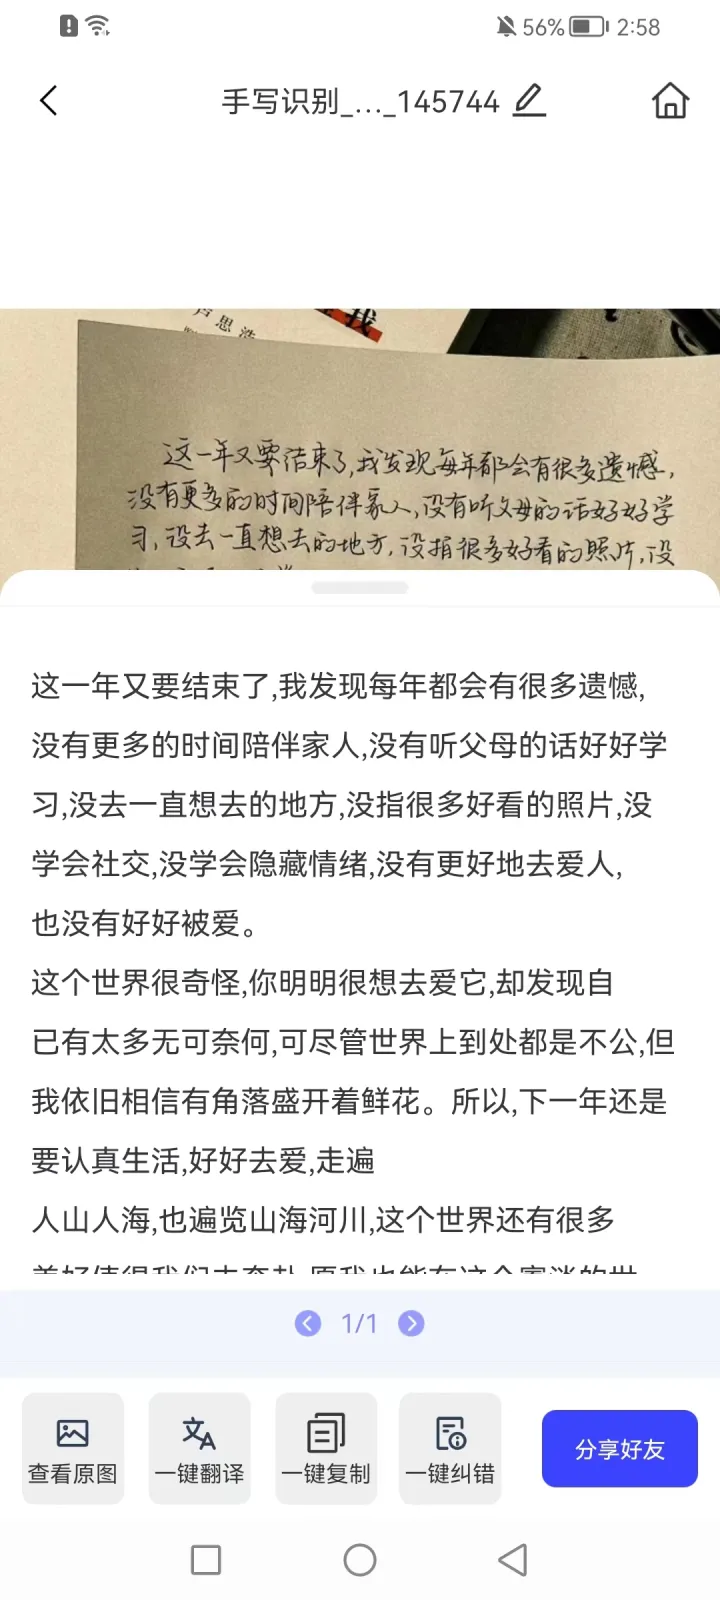 56% 2:58
手写识别_..._145744
卢思浩
我
这一年又要结束了,我发现每年都会有很多遗憾,
没有更多的时间陪伴家人,没有听父母的话好好学
习,没去一直想去的地方,没指很多好看的照片,没
这一年又要结束了,我发现每年都会有很多遗憾,
没有更多的时间陪伴家人,没有听父母的话好好学
习,没去一直想去的地方,没指很多好看的照片,没
学会社交,没学会隐藏情绪,没有更好地去爱人,
也没有好好被爱。
这个世界很奇怪,你明明很想去爱它,却发现自
已有太多无可奈何,可尽管世界上到处都是不公,但
我依旧相信有角落盛开着鲜花。所以,下一年还是
要认真生活,好好去爱,走遍
人山人海,也遍览山海河川,这个世界还有很多
1/1
查看原图 一键翻译 一键复制 一键纠错 分享好友